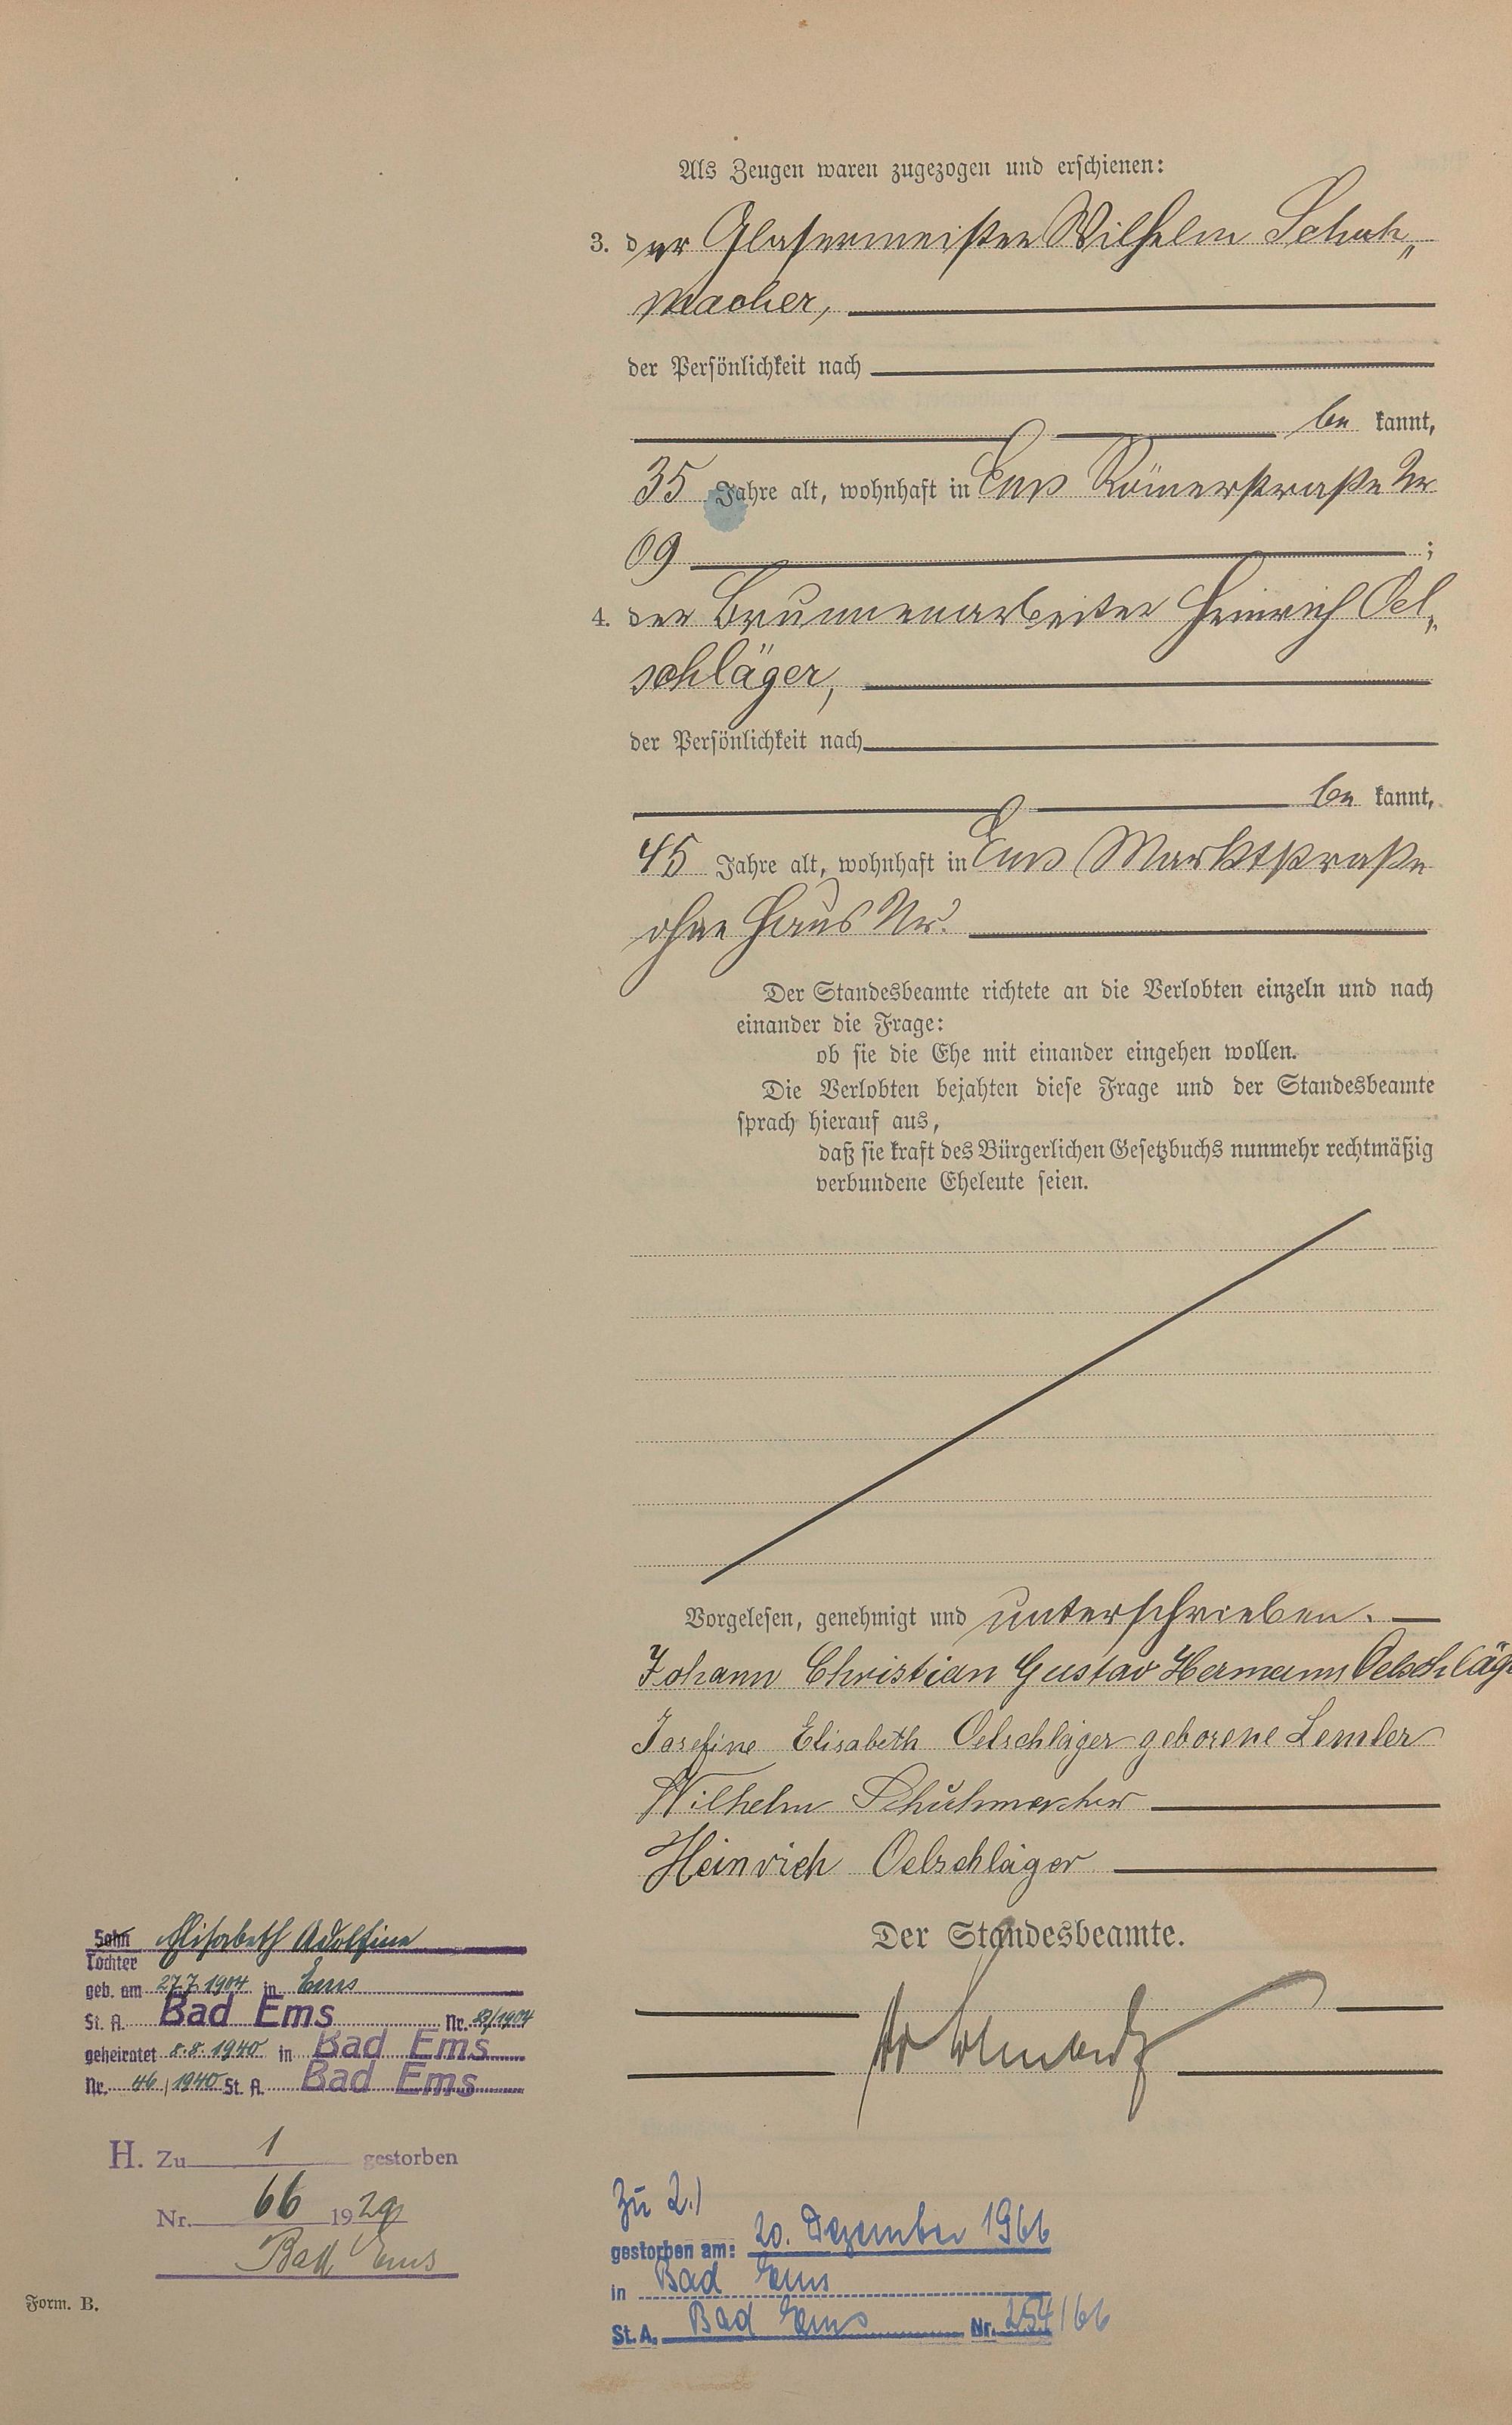 Als Zeugen waren zugezogen und erschienen:
3. der Glasermeister Wilhelm Schuh„
macher,
der Persönlichkeit nach
be kannt,
35 Jahre alt, wohnhaft in Ems Römerstraße Nr
69 ;
4. der Brunnenarbeiter Heinrich Oel„
schläger,
der Persönlichkeit nach
be kannt,
45 Jahre alt, wohnhaft in Ems Marktstraße
ohne Haus Nr.
Der Standesbeamte richtete an die Verlobten einzeln und nach
einander die Frage:
ob sie die Ehe mit einander eingehen wollen.
Die Verlobten bejahten diese Frage und der Standesbeamte
sprach hierauf aus,
daß sie kraft des Bürgerlichen Gesetzbuchs nunmehr rechtmäßig
verbundene Eheleute seien.
Vorgelesen, genehmigt und unterschrieben.
Johann Christian Gustav Hermann Oelschläge
Josefine Elisabeth Oelschläger geborene Lemler
Wilhelm Schuhmacher
Heinrich Oelschläger
Der Standesbeamte.
Sohn Elisabeth Adolfine
Tochter
geb. am 27.7.1904 in Ems
St. A. Bad Ems Nr. /1904
geheiratet 8.8.1940 in Bad Ems
Nr. 46/1940 St. A. Bad Ems
H. Zu 1 gestorben
Nr. 66 1929
Bad Ems
Zu 2.)
gestorben am: 20. Dezember 1966
in Bad Ems
St. A. Bad Ems Nr. 254/66
Form. B.